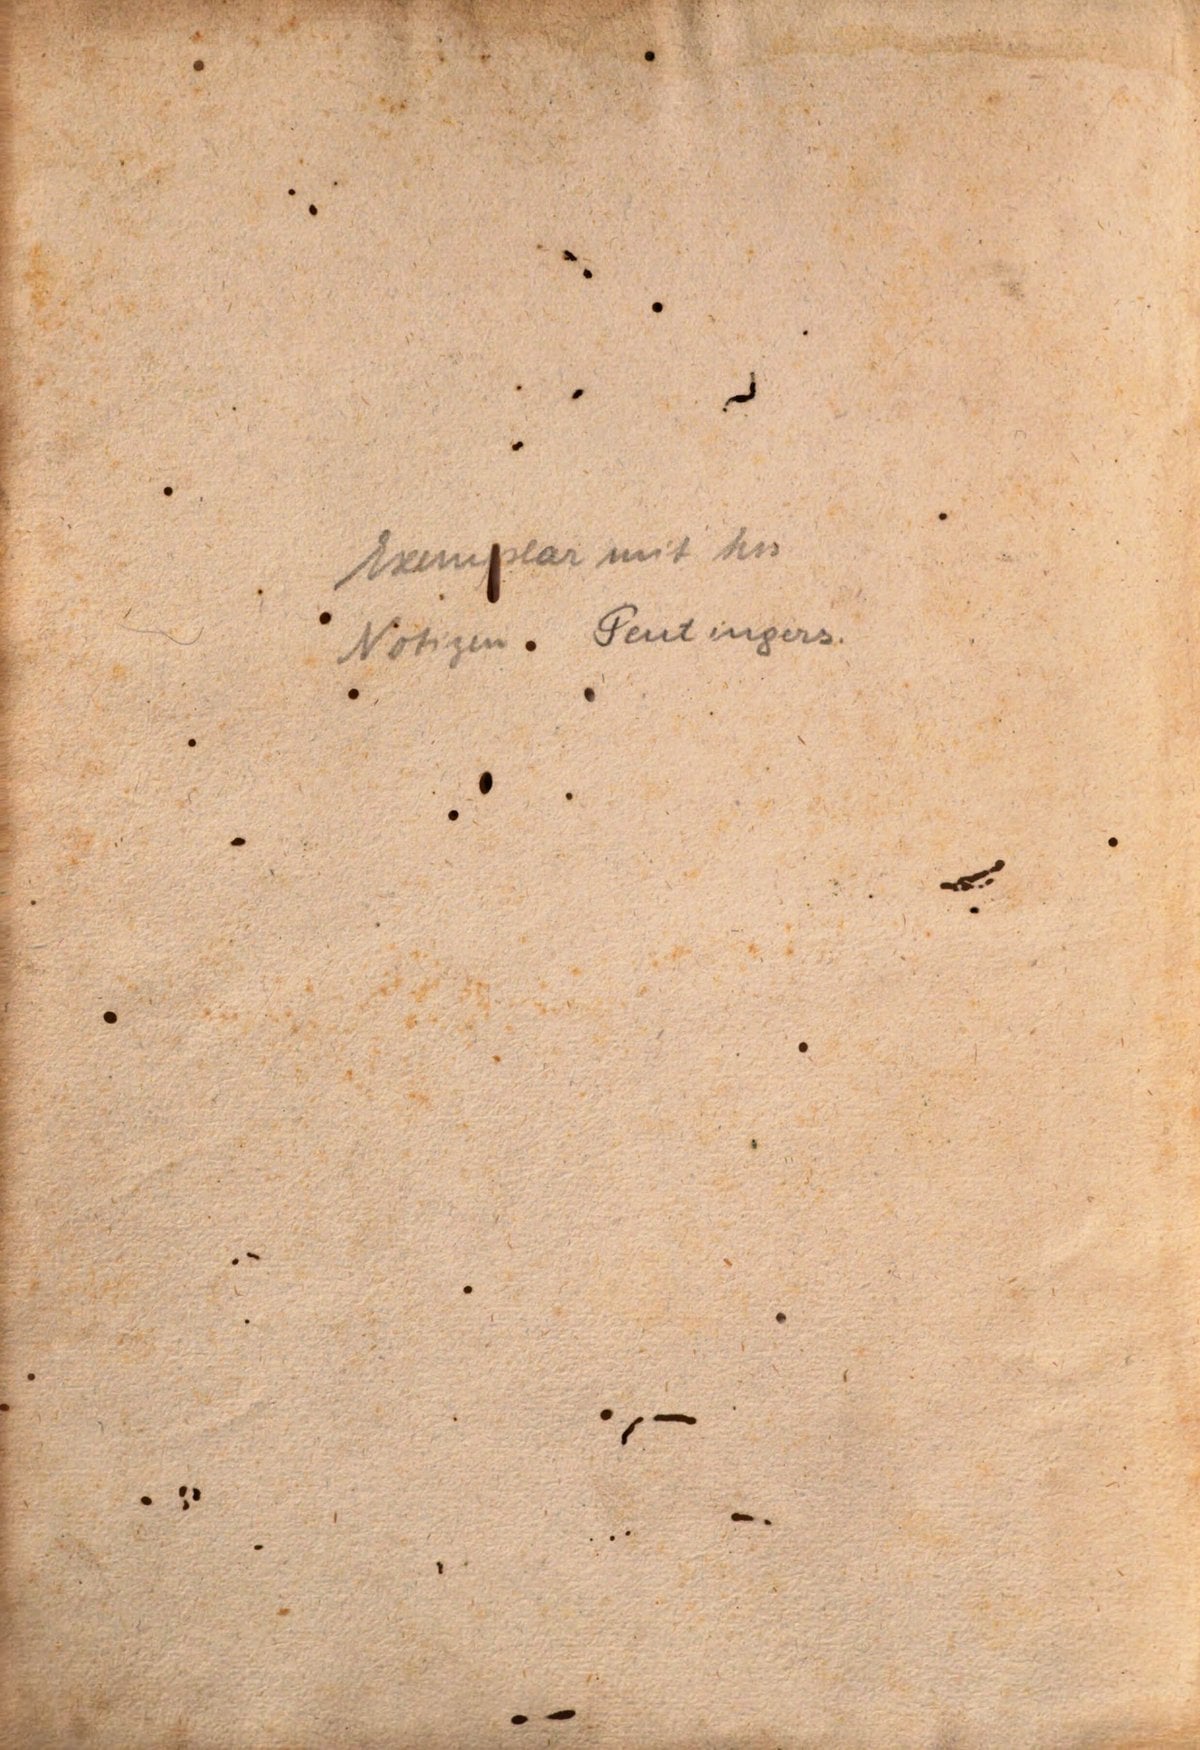 Exemplar mit hss
Notizen Peutingers.